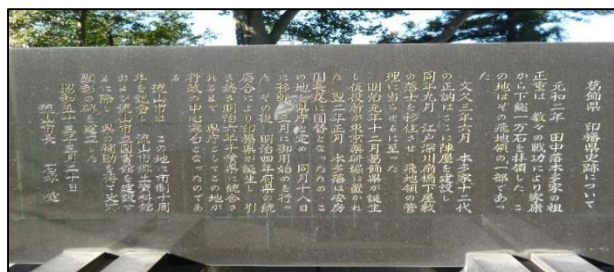 葛飾県 印旛県史跡について
元和二年 田中藩本多家の祖
正重は 数々の戦功により家康
から下総一万石を拝領した こ
の地はその飛地領の一部であっ
た
文久三年六月 本多家十二代
の正訥はここに陣屋を建設し
同年九月 江戸深川扇橋下屋敷
の藩士を移住させ 飛地領の管
理に当らせるに至った
明治元年十二月葛飾県が誕生
し仮役所が東京薬研堀に置かれ
た 翌二年正月 本多藩は安房
国長尾に国替となったため こ
の地に県庁と定め 同月十八日
に移転 二月に御用始めを行っ
た その後 明治四年右県の統
廃合により印旛県が誕生し 引
き続き明治六年千葉県に統合さ
れるまで 県庁としてこの地が
行政の中心舞台となったのであ
る
流山市は この地に市制十周
年を記念し 流山市郷土資料館
および流山市立図書館を建設す
るに際し 県の補助を得て史跡
顕彰の碑を建立した
昭和五十三年三月二十日
流山市長